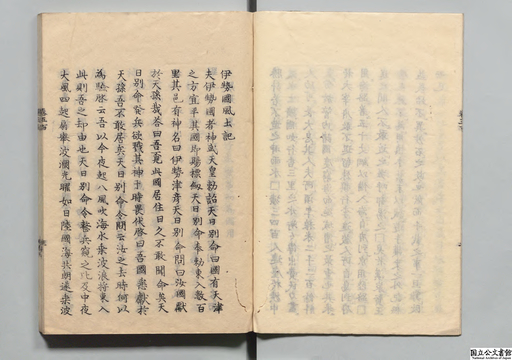 伊勢國風土記
夫伊勢國者神武天皇勅詔天日別命曰國有天津
之方宜平其國即賜標劔天日別命奉勅東入數百
里其邑有神名曰伊勢津彦天日別命問曰汝國獻
於天孫哉答曰吾覓此國居住日久不敢聞命矣天
日別命發兵欲戮其神于時畏伏啓曰吾國悉獻於
天孫吾不敢居矣天日別命令問云汝之去時何以
為驗啓云吾以今夜起八風吹海水乗波浪将東入
此則吾之却由也天日別命令整兵窺之比及中夜
大風四起扇擧波瀾光曜如日陸國海共朗遂乗波
国立公文書館
National Archives of Japan